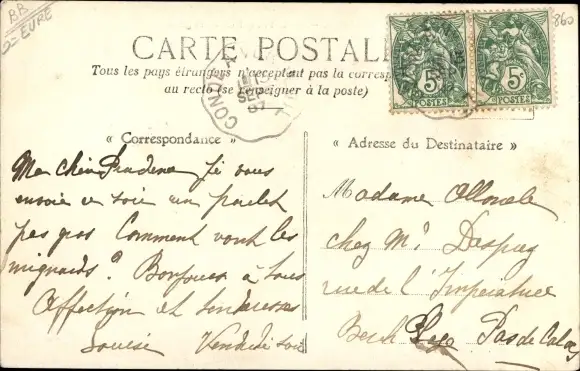 BB
EURE
860
CARTE POSTALE
Tous les pays étrangers n'acceptent pas la corresp
au recto (se renseigner à la poste)
5c 5c
POSTES POSTES
CONCH
« Correspondance »
Ma chère Prudence Je vous
envoie ce soir un paquet
pas gros Comment vont les
mignards? Bonjours à tous
Affection et tendresses
Louise Vendredi soir
« Adresse du Destinataire »
Madame
chez Mr Desprey
rue de l'Impératrice
Berck Plage Pas de Calais